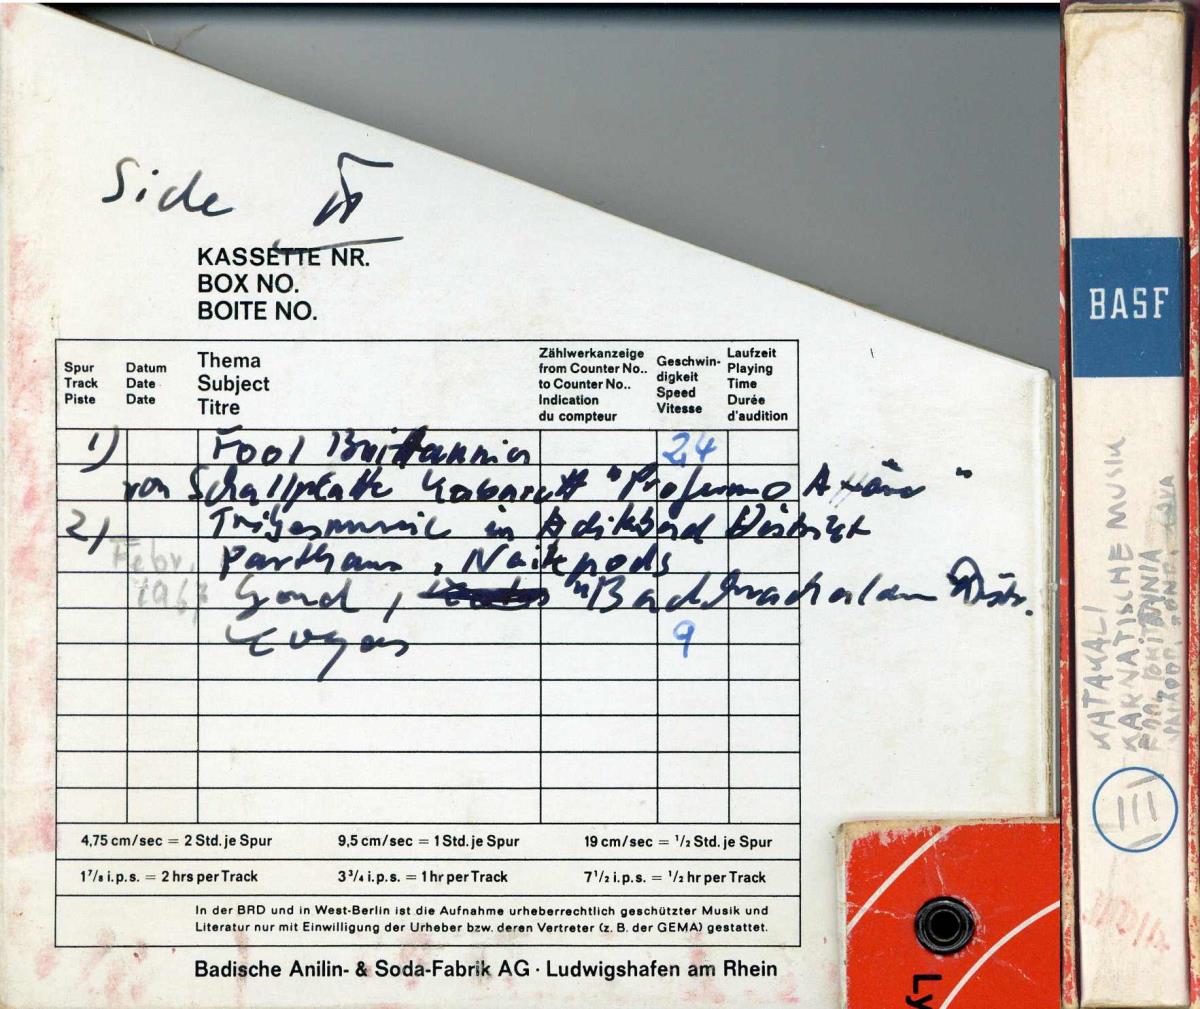 Side II
KASSETTE NR.
BOX NO.
BOITE NO.
Spur
Track
Piste
Datum
Date
Date
Thema
Subject
Titre
Zählwerkanzeige
from Counter No..
to Counter No..
Indication
du compteur
Geschwin-
digkeit
Speed
Vitesse
Laufzeit
Playing
Time
Durée
d'audition
1) Fool Brittannia 24
von Schallplatte Kabarett "Profumo
2) Tribesmusic in Adilabad District
Pardhans, Naikpods
Febr.
Gond,
Koyas 9
4,75 cm/sec = 2 Std. je Spur 9,5 cm/sec = 1 Std. je Spur 19 cm/sec = 1/2 Std. je Spur
1 7/8 i.p.s. = 2 hrs per Track 3 3/4 i.p.s. = 1 hr per Track 7 1/2 i.p.s. = 1/2 hr per Track
In der BRD und in West-Berlin ist die Aufnahme urheberrechtlich geschützter Musik und
Literatur nur mit Einwilligung der Urheber bzw. deren Vertreter (z. B. der GEMA) gestattet.
Badische Anilin- & Soda-Fabrik AG · Ludwigshafen am Rhein
Ly
BASF
KATAKALI
KARNATISCHE MUSIK
III